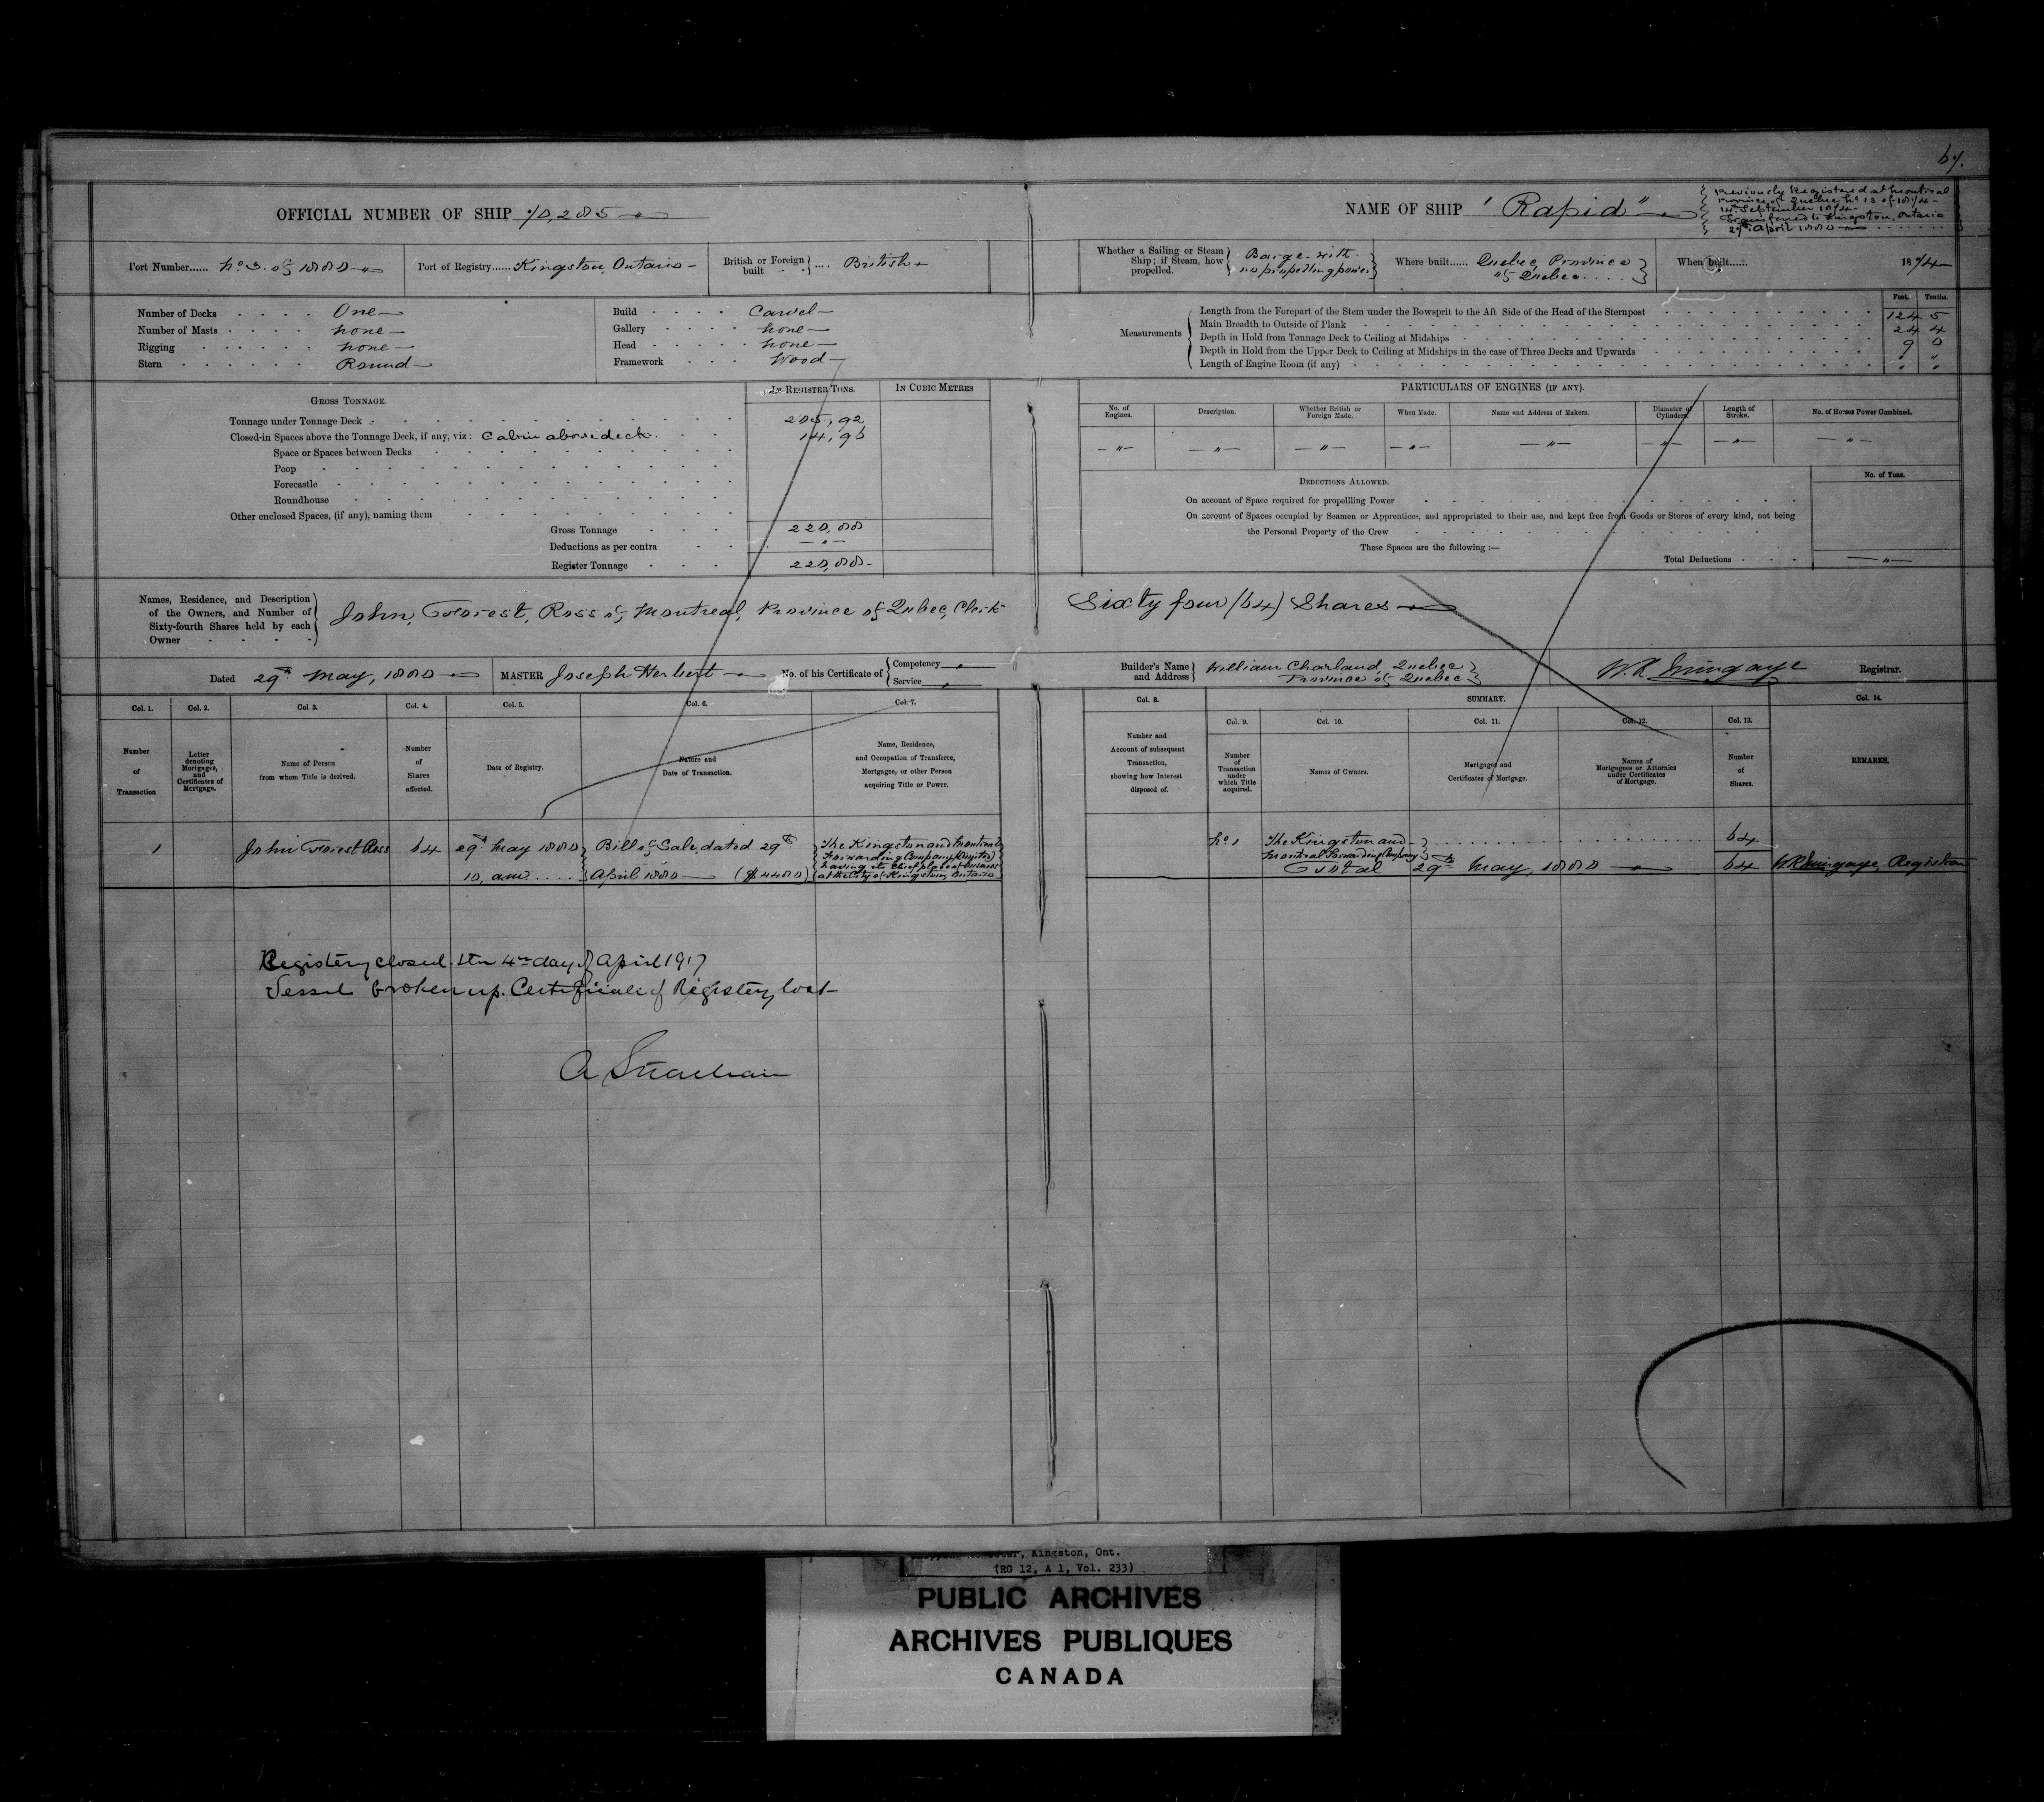 67.
OFFICIAL NUMBER OF SHIP 70,285
NAME OF SHIP "Rapid"
Previously Registered at Montreal
Province of Quebec No 13 of 1874 -
14th September 1874 -
Transferred to Kingston, Ontario
29th April 1880
Port Number...... No 3. of 1880
Port of Registry...... Kingston, Ontario -
British or Foreign built .... British
Whether a Sailing or Steam Ship; if Steam, how propelled. Barge with no propelling power
Where built...... Quebec, Province of Quebec....
When built...... 1874
Number of Decks One
Number of Masts none
Rigging none
Stern Round
Build Carvel
Gallery none
Head none
Framework Wood
Measurements
Feet. Tenths.
Length from the Forepart of the Stem under the Bowsprit to the Aft Side of the Head of the Sternpost 124 5
Main Breadth to Outside of Plank 24 4
Depth in Hold from Tonnage Deck to Ceiling at Midships 9 0
Depth in Hold from the Upper Deck to Ceiling at Midships in the case of Three Decks and Upwards " "
Length of Engine Room (if any) " "
GROSS TONNAGE.
IN REGISTER TONS.
IN CUBIC METRES
Tonnage under Tonnage Deck 205,92
Closed-in Spaces above the Tonnage Deck, if any, viz: Cabin above deck. 14,96
Space or Spaces between Decks
Poop
Forecastle
Roundhouse
Other enclosed Spaces, (if any), naming them
Gross Tonnage 220,88
Deductions as per contra — " —
Register Tonnage 220,88 -
PARTICULARS OF ENGINES (IF ANY).
No. of Engines.
Description.
Whether British or Foreign Made.
When Made.
Name and Address of Makers.
Diameter of Cylinders.
Length of Stroke.
No. of Horses Power Combined.
— " — — " — — " — — " — — " — — " — — " — — " —
DEDUCTIONS ALLOWED.
No. of Tons.
On account of Space required for propellling Power
On account of Spaces occupied by Seamen or Apprentices, and appropriated to their use, and kept free from Goods or Stores of every kind, not being
the Personal Property of the Crew
These Spaces are the following :—
Total Deductions — " —
Names, Residence, and Description of the Owners, and Number of Sixty-fourth Shares held by each Owner
John, Forest, Ross of Montreal, Province of Qubec, Clerk Sixty four (64) Shares
Dated 29th May, 1880
MASTER Joseph Herbert
No. of his Certificate of Competency Service
Builder's Name and Address William Charland, Quebec Province of Quebec
W.R. Mingaye Registrar.
Col. 1. Col. 2. Col 3. Col. 4. Col. 5. Col. 6. Col. 7.
Number of Transaction
Letter denoting Mortgages, and Certificates of Mortgage.
Name of Person from whom Title is derived.
Number of Shares affected.
Date of Registry.
Nature and Date of Transaction.
Name, Residence, and Occupation of Transferee, Mortgagee, or other Person acquiring Title or Power.
Col. 8. SUMMARY. Col. 14.
Col. 9. Col. 10. Col. 11. Col. 12. Col. 13.
Number and Account of subsequent Transaction, showing how Interest disposed of.
Number of Transaction under which Title acquired.
Names of Owners.
Mortgages and Certificates of Mortgage.
Names of Mortgagees or Attornies under Certificates of Mortgage.
Number of Shares.
REMARKS.
1 John Forest Ross 64 29th May 1880
10, am.....
Bill of Sale, dated 29th
April 1880 ($4400)
The Kingston and Montreal
Forwarding Company (Limited)
having its Chief place of business
at the City of Kingston, Ontario
No 1 The Kingston and
Montreal Forwarding Company 64
Total 29th May, 1880 64 W.R. Mingaye, Registrar
Registry closed this 4th day of April 1917
Vessel broken up. Certificate of Registry lost
A Strachan
Shipping Register, Kingston, Ont.
(RG 12, A 1, Vol. 233)
PUBLIC ARCHIVES
ARCHIVES PUBLIQUES
CANADA